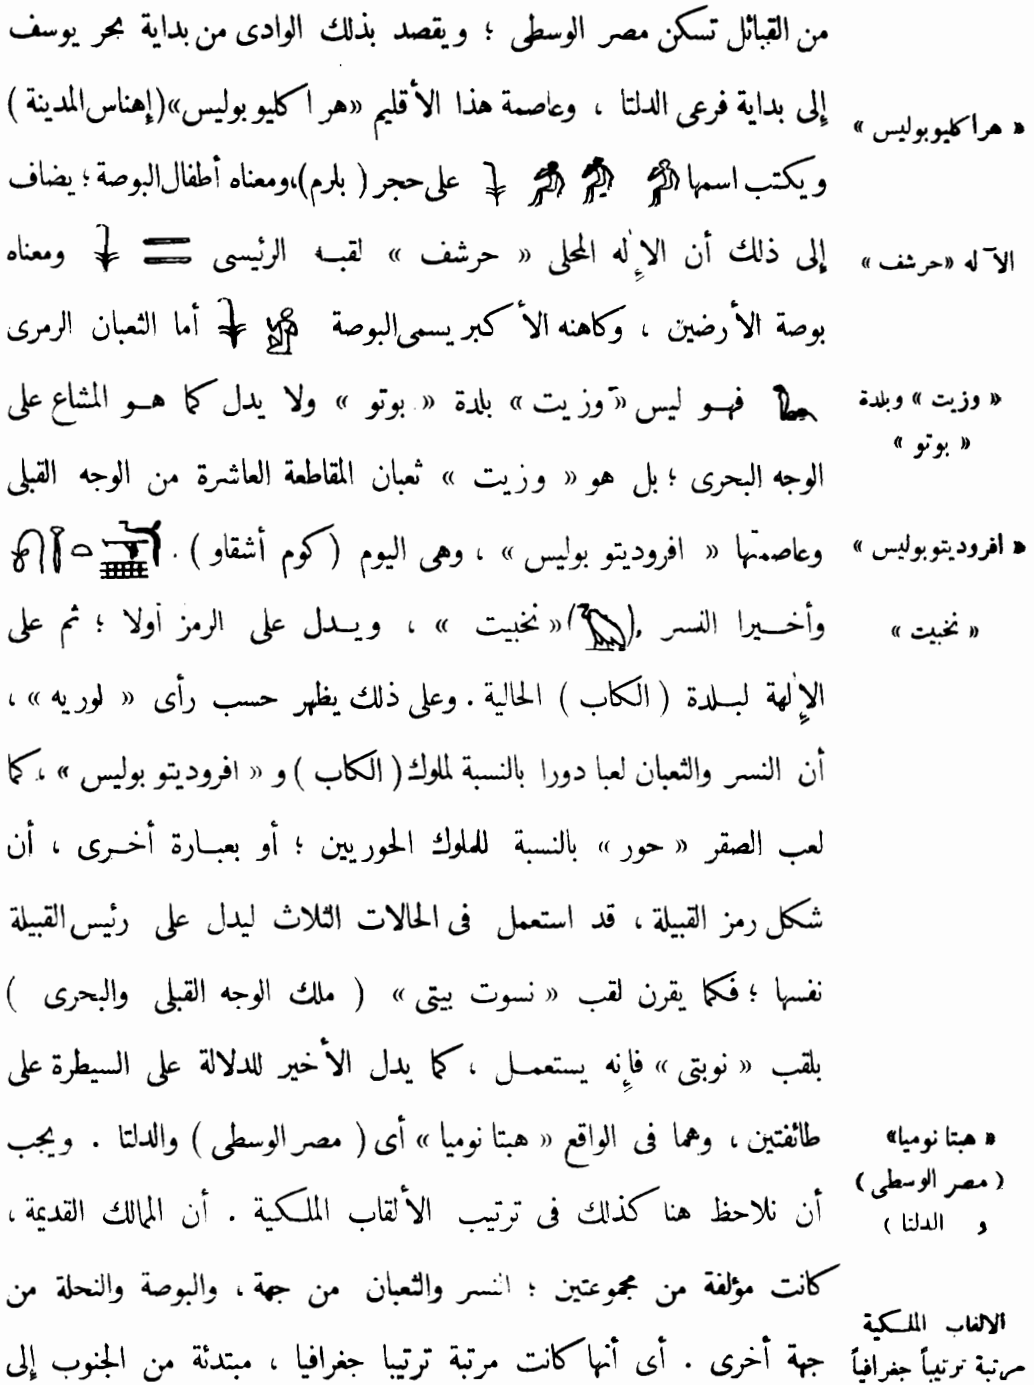 من القبائل تسكن مصر الوسطى ؛ ويقصد بذلك الوادى من بداية بحر يوسف
إلى بداية فرعى الدلتا ، وعاصمة هذا الأقليم «هرا كليو بوليس»(إهناس المدينة )
« هراكليوبوليس »
ويكتب اسمها على حجر ( بلرم)،ومعناه أطفال البوصة ؛ يضاف
إلى ذلك أن الإله المحلى « حرشف » لقبه الرئيسى ومعناه
الآله «حرشف »
بوصة الأرضين ، وكاهنه الأكبر يسمى البوصة أما الثعبان الرمزى
فهو ليس «وزيت» بلدة « بوتو » ولا يدل كما هو المشاع على
« وزيت » وبلدة
« بوتو »
الوجه البحرى ؛ بل هو « وزيت » ثعبان المقاطعة العاشرة من الوجه القبلى
وعاصمتها « افروديتو بوليس » ، وهى اليوم ( كوم أشقاو ) .
« أفروديتوبوليس »
وأخيرا النسر ( )« نخبيت » ، ويدل على الرمز أولا ؛ ثم على
« نخبيت »
الإلهة لبلدة ( الكاب ) الحالية . وعلى ذلك يظهر حسب رأى « لوريه » ،
أن النسر والثعبان لعبا دورا بالنسبة لملوك ( الكاب ) و « افروديتو بوليس » ، كما
لعب الصقر « حور » بالنسبة للملوك الحوريين ؛ أو بعبارة أخرى ، أن
شكل رمز القبيلة ، قد استعمل فى الحالات الثلاث ليدل على رئيس القبيلة
نفسها ؛ فكما يقرن لقب « نسوت بيتى » ( ملك الوجه القبلى والبحرى )
بلقب « نوبتى » فإنه يستعمل ، كما يدل الأخير للدلالة على السيطرة على
طائفتين ، وهما فى الواقع « هبتا نوميا » أى ( مصر الوسطى ) والدلتا . ويجب
« هبتا نوميا»
( مصر الوسطى )
و الدلتا )
أن نلاحظ هنا كذلك فى ترتيب الألقاب الملكية . أن الممالك القديمة ،
كانت مؤلفة من مجموعتين ؛ النسر والثعبان من جهة ، والبوصة والنحلة من
الالقاب الملكية
جهة أخرى . أى أنها كانت مرتبة ترتيبا جغرافيا ، مبتدئة من الجنوب إلى
مرتبة ترتيباً جغرافياً